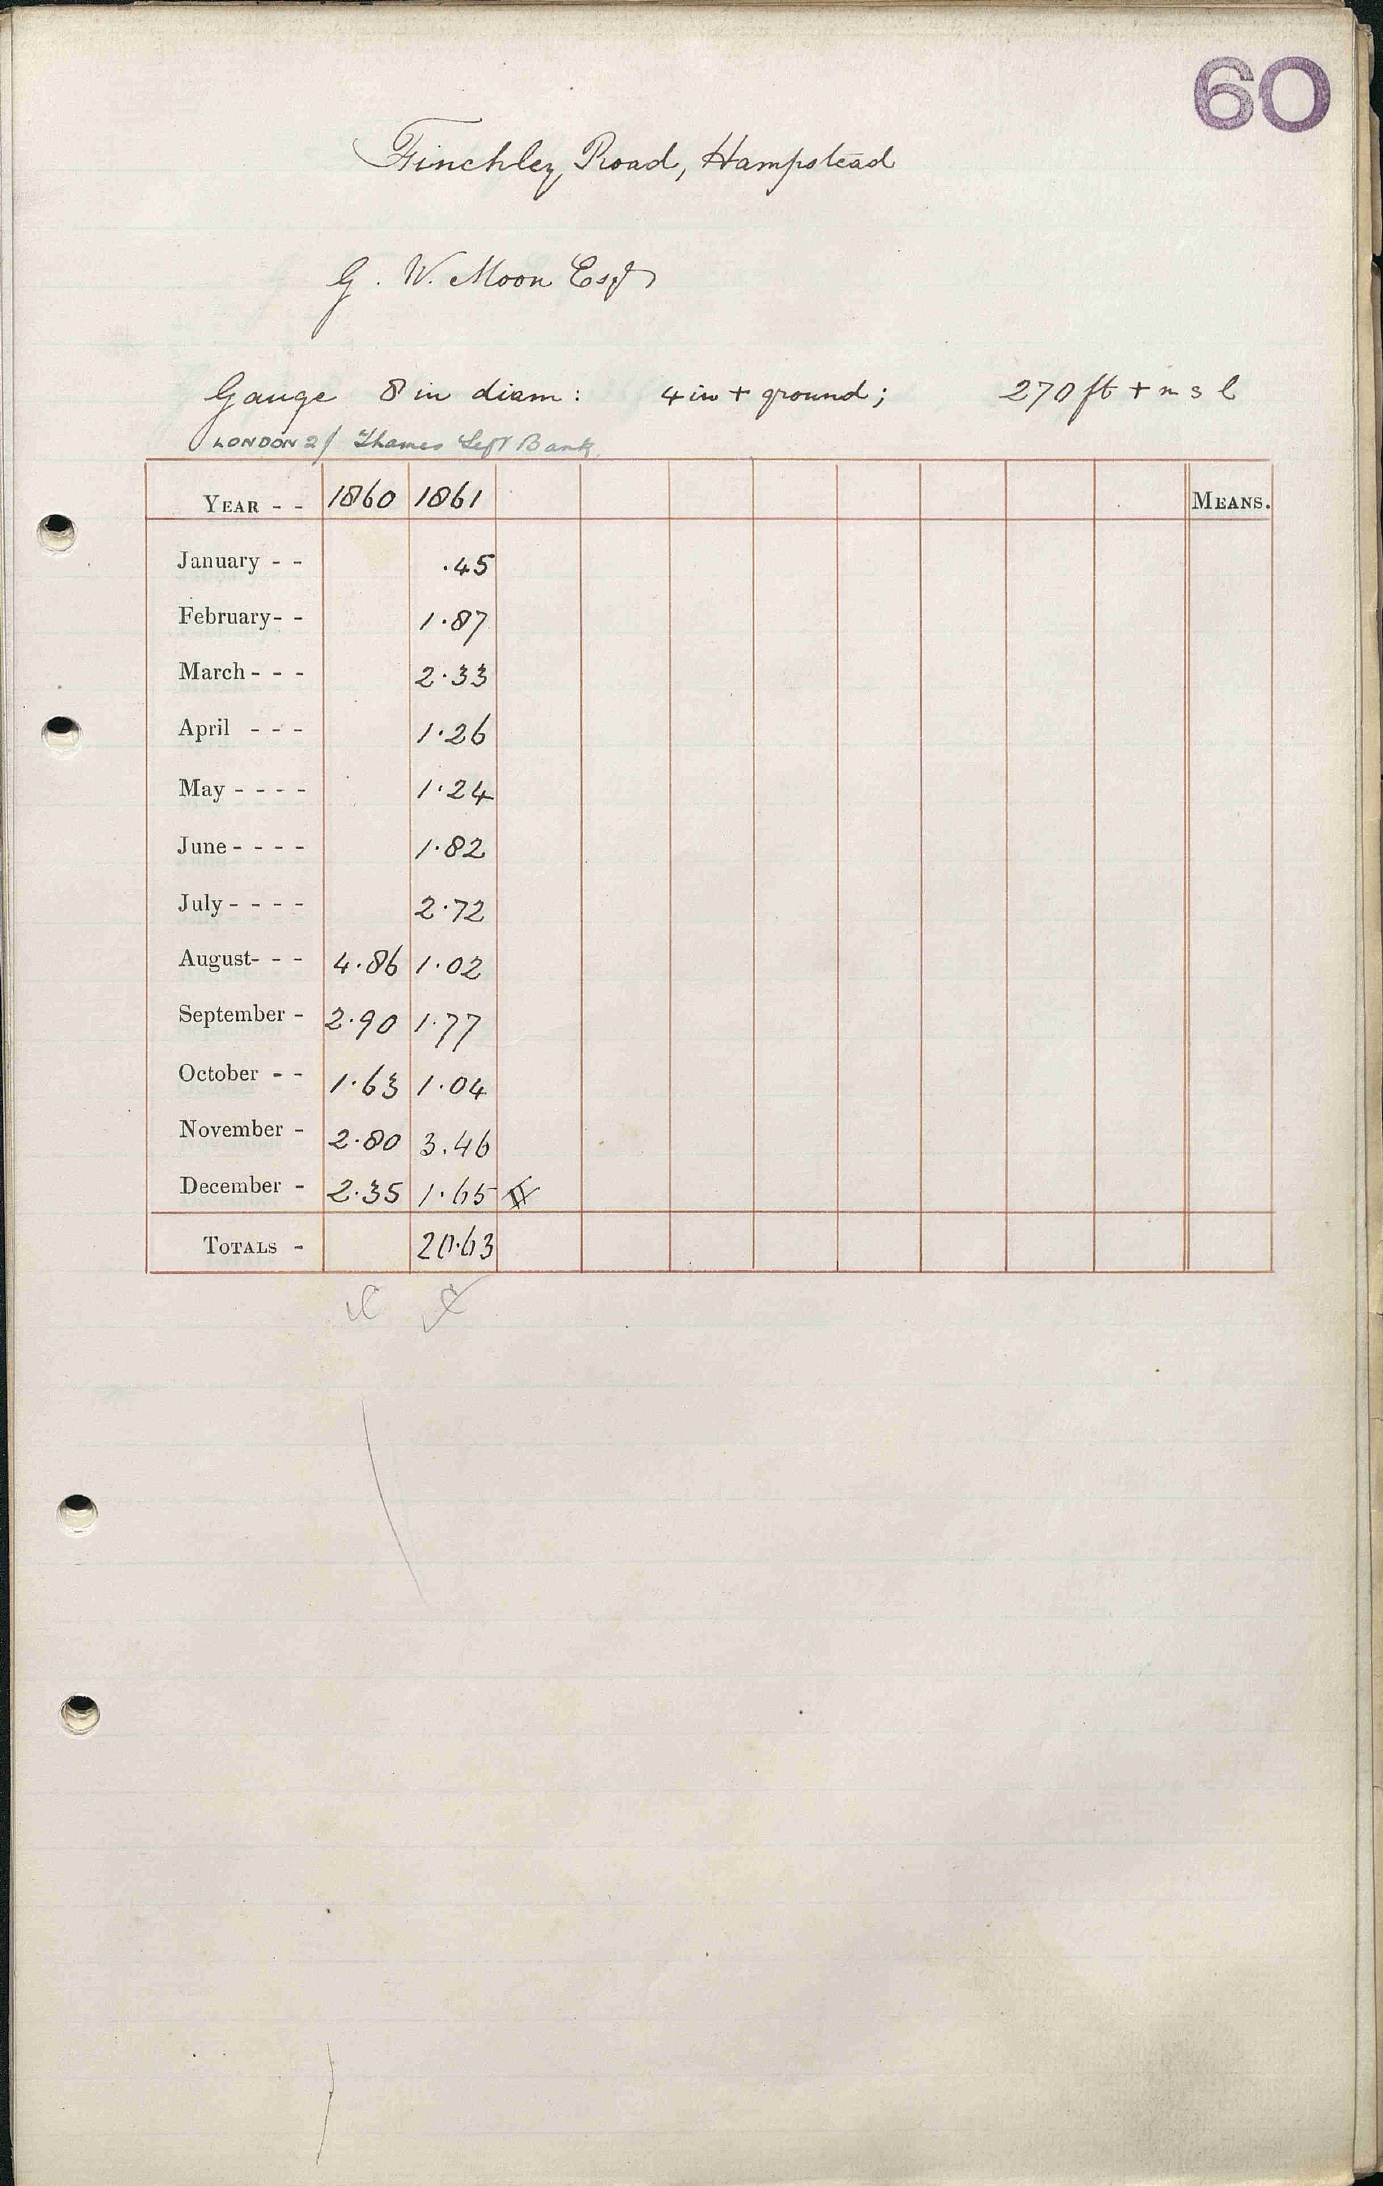 60
Finchley Road, Hampstead
G. W. Moon Esqr
Gauge 8 in diam: 4 in + ground; 270 ft + m s l
LONDON 2/ Thames Left Bank
YEAR - - 1860 1861 MEANS.
January - - .45
February - - 1.87
March - - - 2.33
April - - - 1.26
May - - - - 1.24
June - - - - 1.82
July - - - - 2.72
August - - - 4.86 1.02
September - 2.90 1.77
October - - 1.63 1.04
November - 2.80 3.46
December - 2.35 1.65
TOTALS - 20.63